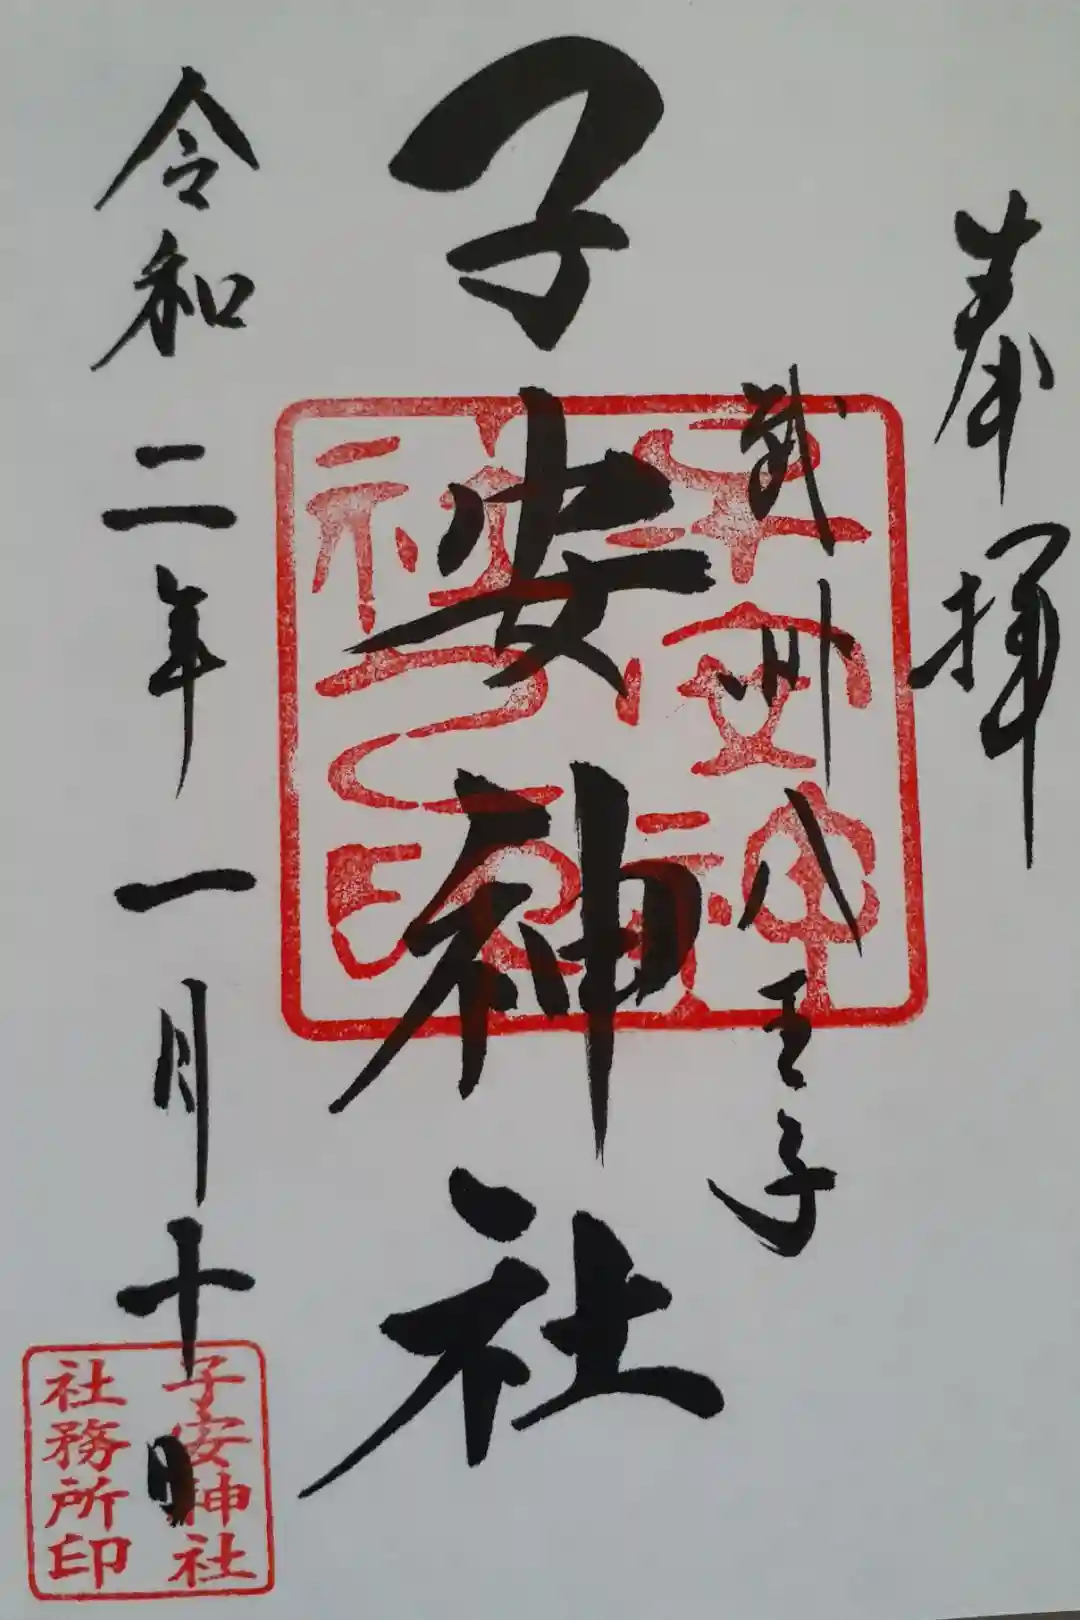 奉拝
武州八王子
子安神社
令和二年一月十日
子安神社之印
子安神社
社務所印